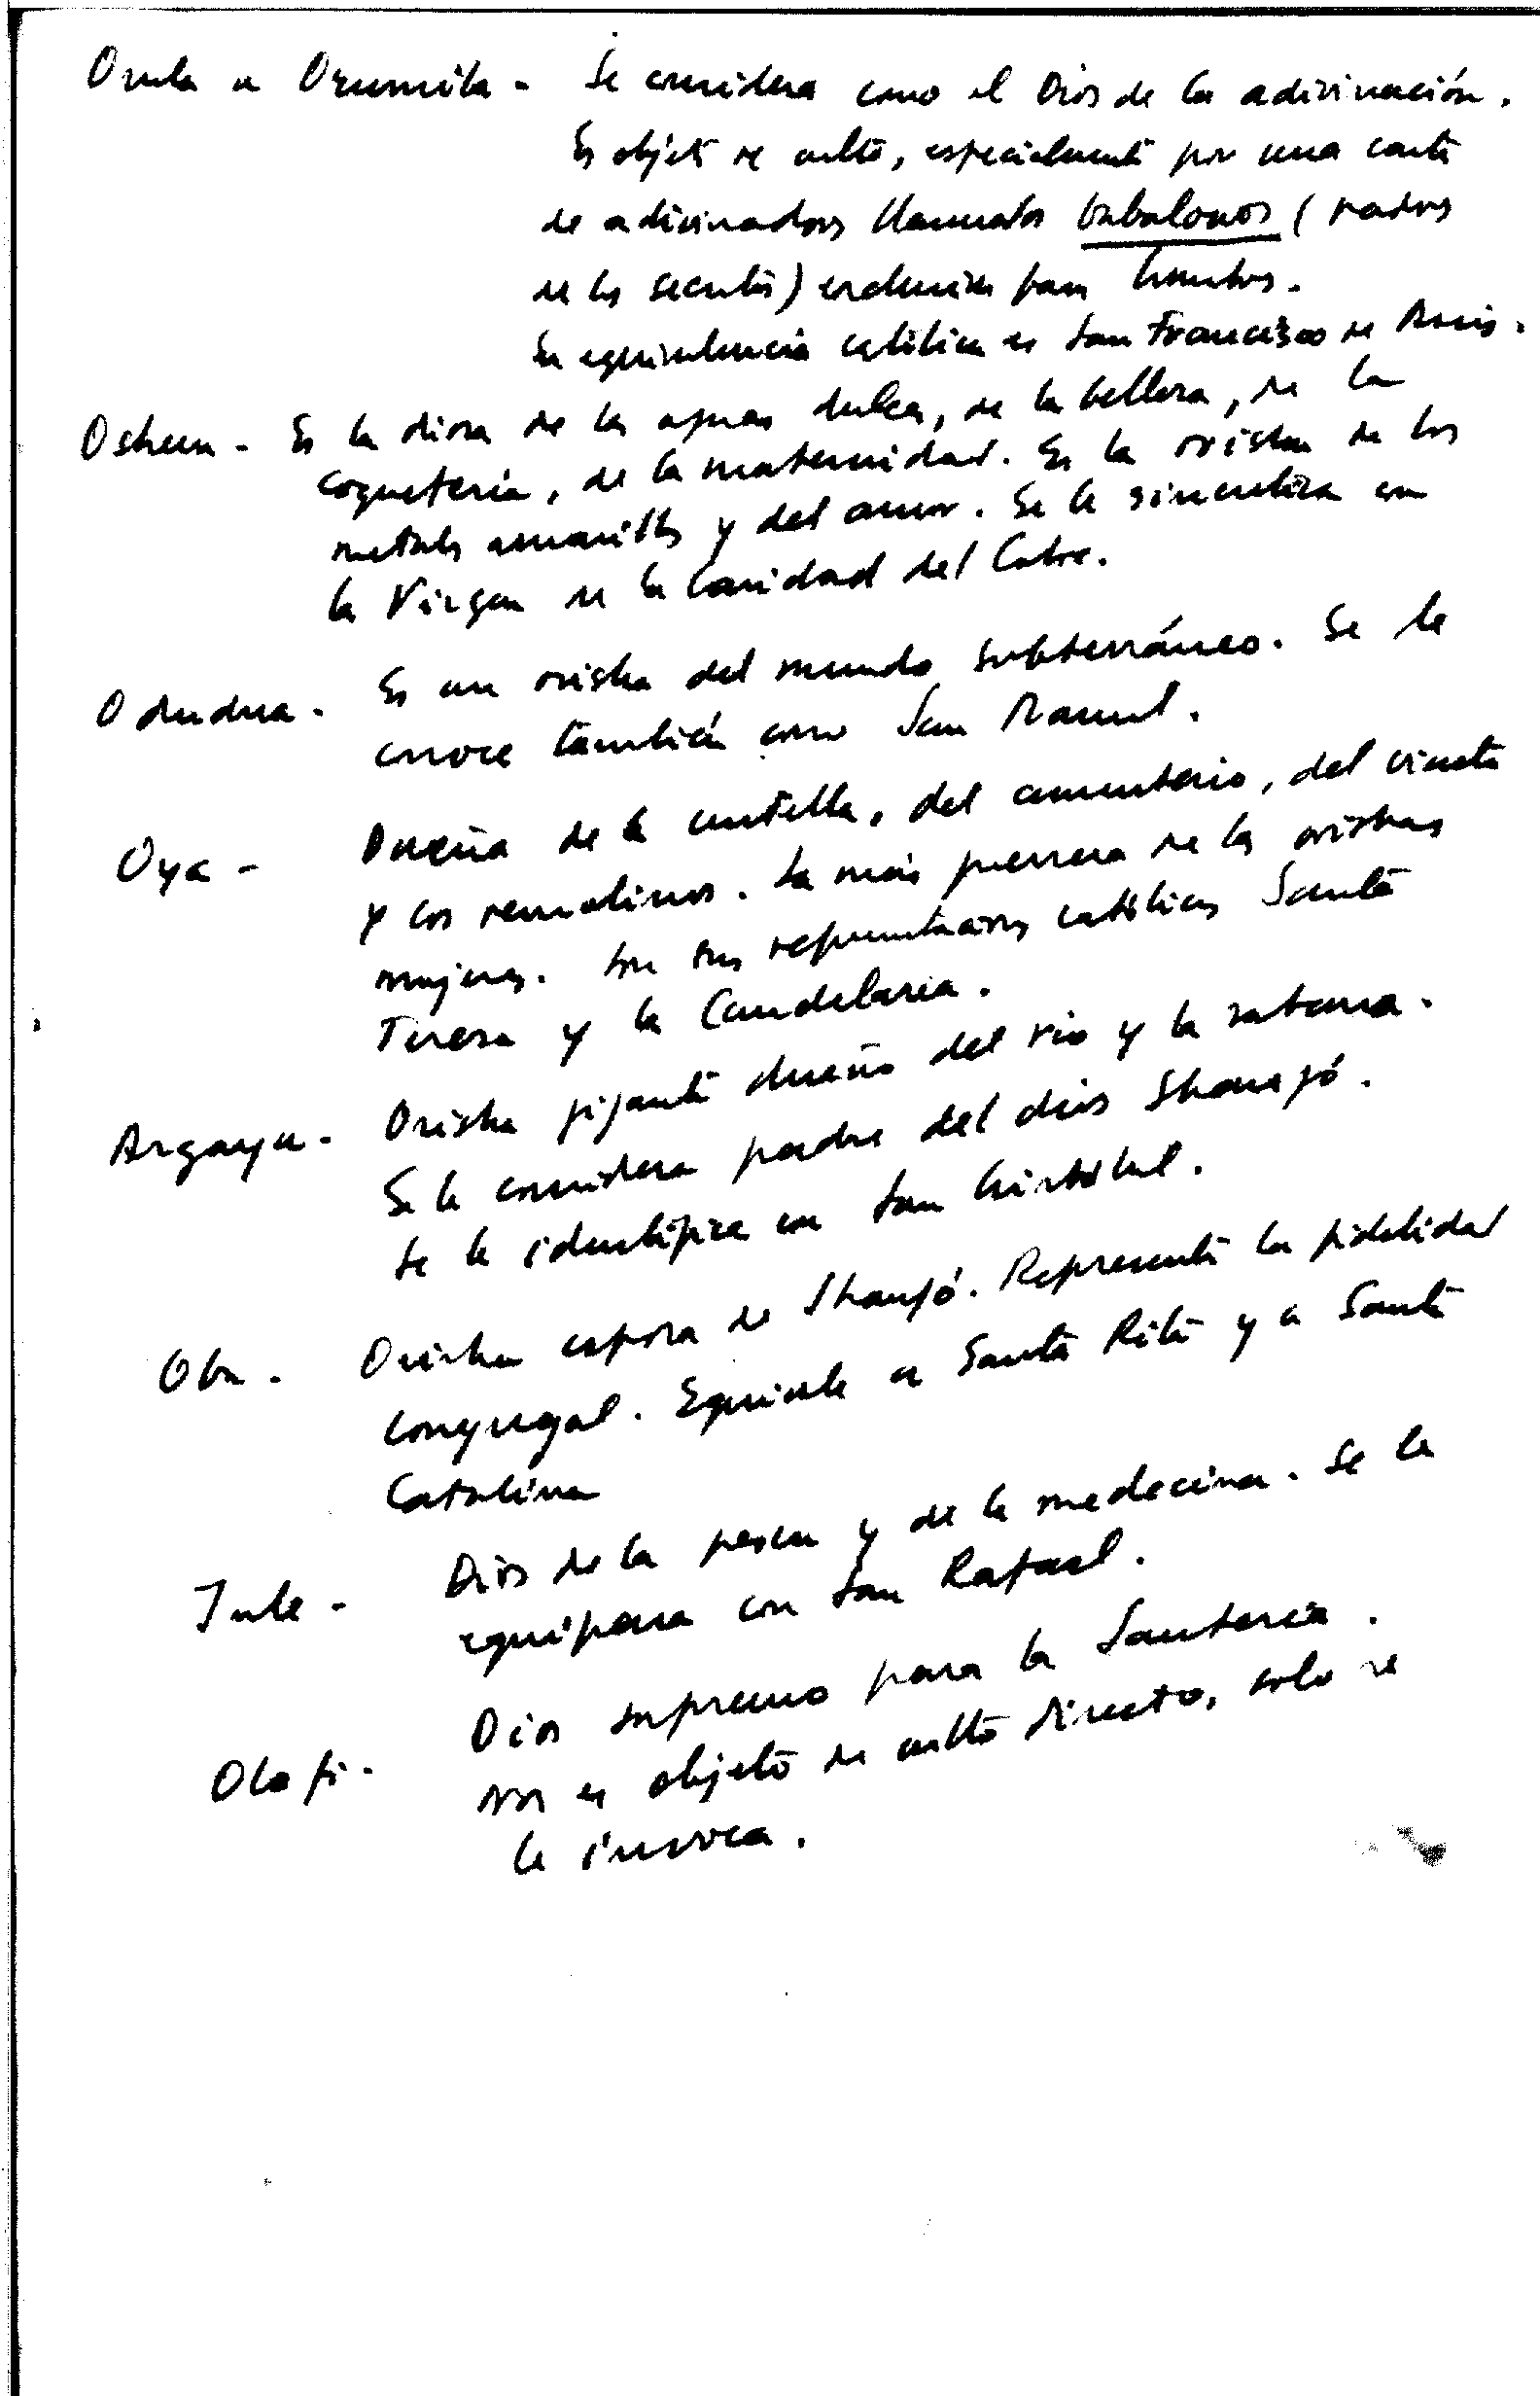 Orula u Orumila - Se considera como el Dios de la adivinación.
Es objeto de culto, especialmente por una casta
de adivinadores llamados babalowos (padres
de los secretos) exclusivos para hombres.
Su equivalencia católica es San Francisco de Asis.
Oshun - Es la diosa de las aguas dulces, de la belleza, de la
coquetería, de la maternidad. Es la orisha de los
metales amarillos y del amor. Se le sincretiza con
la Virgen de la Caridad del Cobre.
Odudua - Es un orisha del mundo subterráneo. Se le
conoce también como San Manuel.
Oya - Dueña de la centella, del cementerio, del viento
y los remolinos. La más guerrera de las orishas
mujeres. Son sus representaciones católicas Santa
Teresa y la Candelaria.
Argayu - Orisha gigante dueño del río y la sabana.
Se le considera padre del dios Shangó.
Se le identifica con San Cristóbal.
Oba - Orisha esposa de Shangó. Representa la fidelidad
conyugal. Equivale a Santa Rita y a Santa
Catalina
Inle - Dios de la pesca y de la medecina. Se le
equipara con San Rafael.
Olofi - Dios supremo para la Santería.
No es objeto de culto directo, solo se
le invoca.